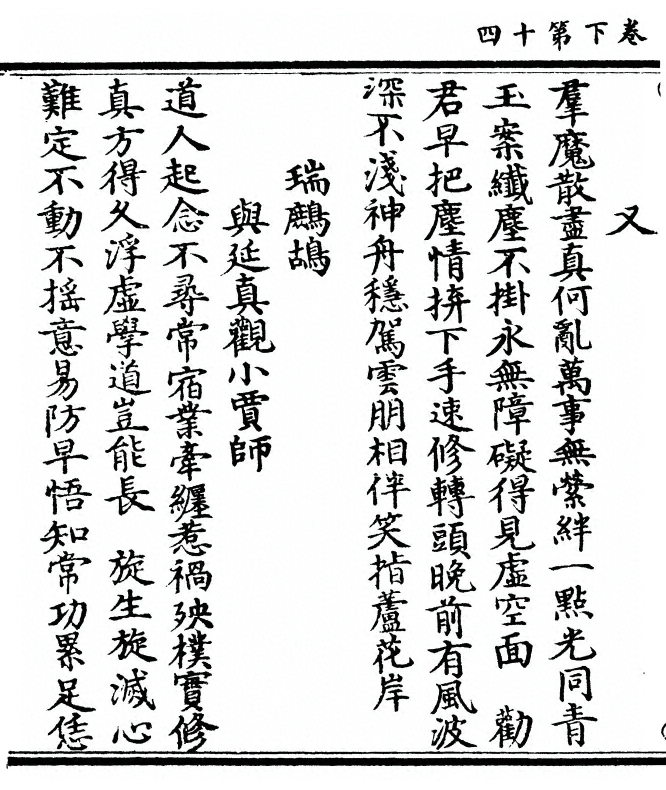 卷下第十四
又
羣魔散盡真何亂萬事無縈絆一點光同青
玉案纖塵不掛永無障礙得見虛空面　勸
君早把塵情拚下手速修轉頭晚前有風波
深不淺神舟穩駕雲朋相伴笑指蘆花岸
瑞鷓鴣
與延真觀小賈師
道人起念不尋常宿業牽纏惹禍殃樸實修
真方得久浮虛學道豈能長　旋生旋滅心
難定不動不搖意易防早悟知常功累足恁